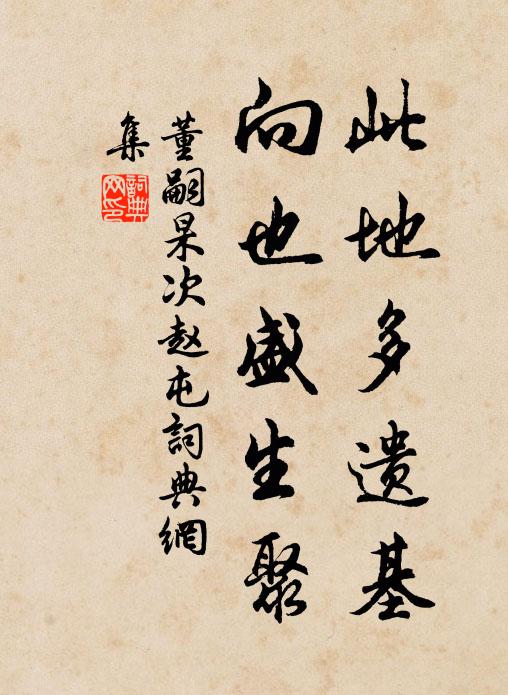 此地多遗基
向也盛生聚
董嗣杲次赵屯詞典網
集
詞典
网印